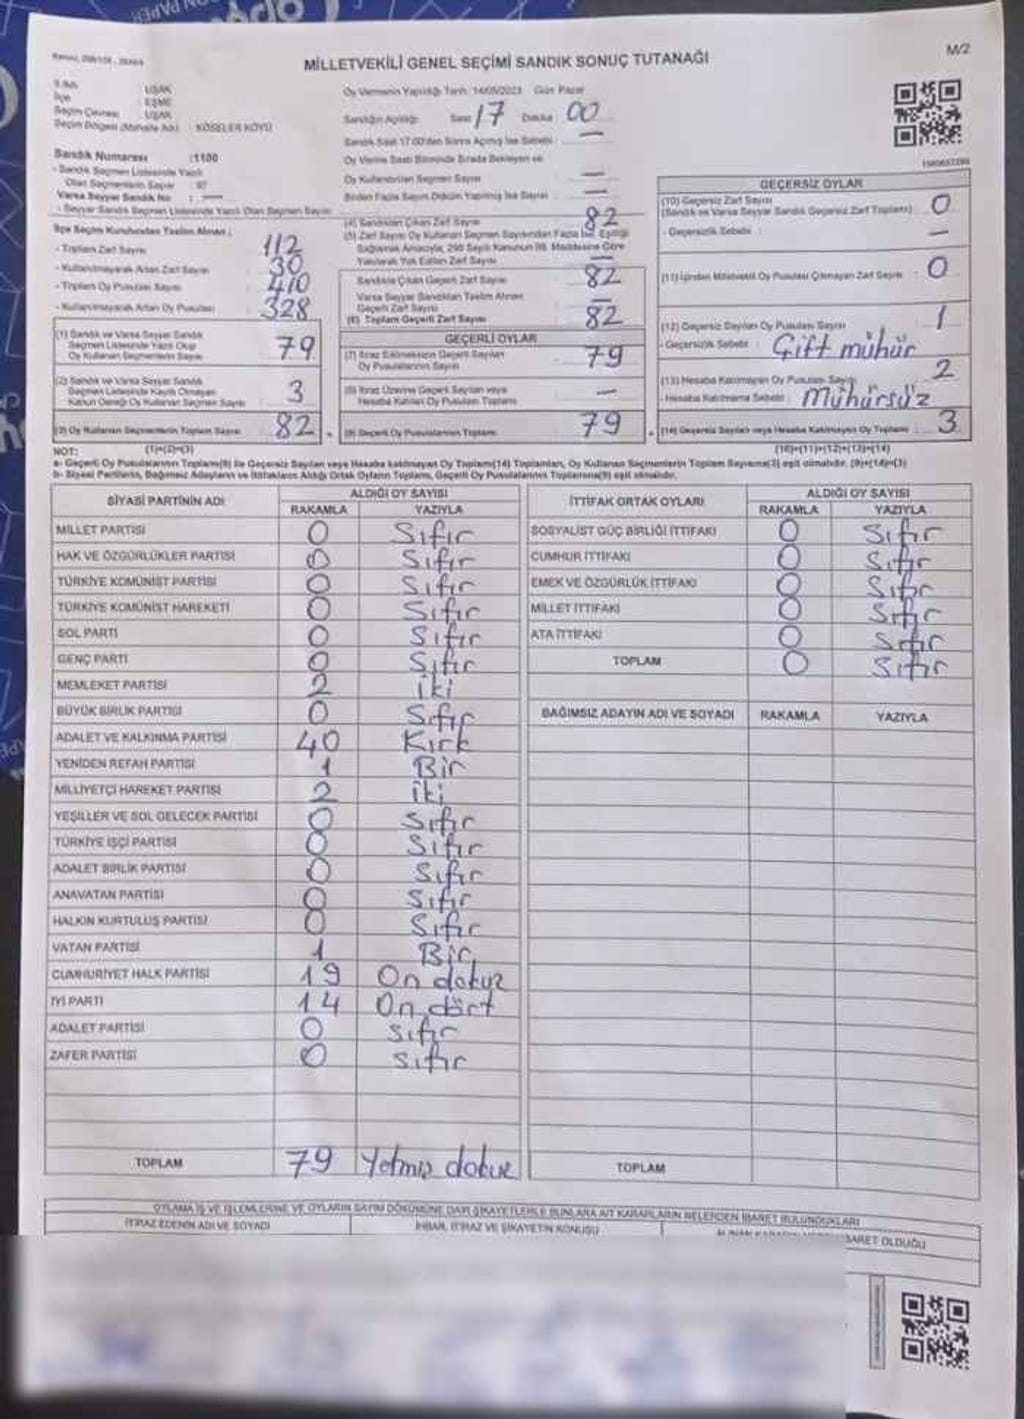 MİLLETVEKİLİ GENEL SEÇİMİ SANDIK SONUÇ TUTANAĞI
M/2
İli UŞAK
İlçe EŞME
Seçim Çevresi UŞAK
Seçim Bölgesi (Mahalle Adı) : KÖSELER KÖYÜ
Oy Vermenin Yapıldığı Tarih: 14/05/2023 Gün Pazar
Sandığın Açıldığı Saat 17 Dakika 00
Sandık Saat 17:00'den Sonra Açılmış İse Sebebi : —
Oy Verme Saati Bitiminde Sırada Bekleyen ve
Oy Kullandırılan Seçmen Sayısı —
Birden Fazla Sayım Döküm Yapılmış İse Sayısı —
Sandık Numarası :1100
- Sandık Seçmen Listesinde Yazılı
Olan Seçmenlerin Sayısı
Varsa Seyyar Sandık No : —
- Seyyar Sandık Seçmen Listesinde Yazılı Olan Seçmen Sayısı
İlçe Seçim Kurulundan Teslim Alınan ;
- Toplam Zarf Sayısı 112
- Kullanılmayarak Artan Zarf Sayısı 30
- Toplam Oy Pusulası Sayısı 410
- Kullanılmayarak Artan Oy Pusulası 328
(4) Sandıktan Çıkan Zarf Sayısı 82
(5) Zarf Sayısı Oy Kullanan Seçmen Sayısından Fazla İse, Eşitliği
Sağlamak Amacıyla, 298 Sayılı Kanunun 98. Maddesine Göre
Yakılarak Yok Edilen Zarf Sayısı —
Sandıkta Çıkan Geçerli Zarf Sayısı 82
Varsa Seyyar Sandıktan Teslim Alınan
Geçerli Zarf Sayısı —
(6) Toplam Geçerli Zarf Sayısı 82
(1) Sandık ve Varsa Seyyar Sandık
Seçmen Listesinde Yazılı Olup
Oy Kullanan Seçmenlerin Sayısı 79
(2) Sandık ve Varsa Seyyar Sandık
Seçmen Listesinde Kayıtlı Olmayan
Kanun Gereği Oy Kullanan Seçmen Sayısı 3
(3) Oy Kullanan Seçmenlerin Toplam Sayısı 82
(1)+(2)=(3)
GEÇERLİ OYLAR
(7) İtiraz Edilmeksizin Geçerli Sayılan
Oy Pusulalarının Sayısı 79
(8) İtiraz Üzerine Geçerli Sayılan veya
Hesaba Katılan Oy Pusulası Toplamı —
(9) Geçerli Oy Pusulalarının Toplamı 79
GEÇERSİZ OYLAR
(10) Geçersiz Zarf Sayısı
(Sandık ve Varsa Seyyar Sandık Geçersiz Zarf Toplamı) : 0
- Geçersizlik Sebebi : —
(11) İçinden Milletvekili Oy Pusulası Çıkmayan Zarf Sayısı : 0
(12) Geçersiz Sayılan Oy Pusulası Sayısı 1
- Geçersizlik Sebebi : Çift mühür
(13) Hesaba Katılmayan Oy Pusulası Sayısı 2
- Hesaba Katılmama Sebebi : Mühürsüz
(14) Geçersiz Sayılan veya Hesaba Katılmayan Oy Toplamı : 3
(10)+(11)+(12)+(13)=(14)
NOT:
a- Geçerli Oy Pusulalarının Toplamı(9) ile Geçersiz Sayılan veya Hesaba katılmayan Oy Toplamı(14) Toplamları, Oy Kullanan Seçmenlerin Toplam Sayısına(3) eşit olmalıdır. (9)+(14)=(3)
b- Siyasi Partilerin, Bağımsız Adayların ve İttifakların Aldığı Ortak Oyların Toplamı, Geçerli Oy Pusulalarının Toplamına(9) eşit olmalıdır.
SİYASİ PARTİNİN ADI ALDIĞI OY SAYISI
RAKAMLA YAZIYLA
MİLLET PARTİSİ 0 Sıfır
HAK VE ÖZGÜRLÜKLER PARTİSİ 0 Sıfır
TÜRKİYE KOMÜNİST PARTİSİ 0 Sıfır
TÜRKİYE KOMÜNİST HAREKETİ 0 Sıfır
SOL PARTİ 0 Sıfır
GENÇ PARTİ 0 Sıfır
MEMLEKET PARTİSİ 2 iki
BÜYÜK BİRLİK PARTİSİ 0 Sıfır
ADALET VE KALKINMA PARTİSİ 40 Kırk
YENİDEN REFAH PARTİSİ 1 Bir
MİLLİYETÇİ HAREKET PARTİSİ 2 iki
YEŞİLLER VE SOL GELECEK PARTİSİ 0 Sıfır
TÜRKİYE İŞÇİ PARTİSİ 0 Sıfır
ADALET BİRLİK PARTİSİ 0 Sıfır
ANAVATAN PARTİSİ 0 Sıfır
HALKIN KURTULUŞ PARTİSİ 0 Sıfır
VATAN PARTİSİ 1 Bir
CUMHURİYET HALK PARTİSİ 19 On dokuz
İYİ PARTİ 14 On dört
ADALET PARTİSİ 0 sıfır
ZAFER PARTİSİ 0 sıfır
TOPLAM 79 Yetmiş dokuz
İTTİFAK ORTAK OYLARI ALDIĞI OY SAYISI
RAKAMLA YAZIYLA
SOSYALİST GÜÇ BİRLİĞİ İTTİFAKI 0 Sıfır
CUMHUR İTTİFAKI 0 Sıfır
EMEK VE ÖZGÜRLÜK İTTİFAKI 0 Sıfır
MİLLET İTTİFAKI 0 Sıfır
ATA İTTİFAKI 0 Sıfır
TOPLAM 0 Sıfır
BAĞIMSIZ ADAYIN ADI VE SOYADI RAKAMLA YAZIYLA
TOPLAM
OYLAMA İŞ VE İŞLEMLERİNE VE OYLARIN SAYIM DÖKÜMÜNE DAİR ŞİKAYETLERLE BUNLARA AİT KARARLARIN NELERDEN İBARET BULUNDUKLARI
İTİRAZ EDENİN ADI VE SOYADI
İHBAR, İTİRAZ VE ŞİKAYETİN KONUSU
İBARET OLDUĞU